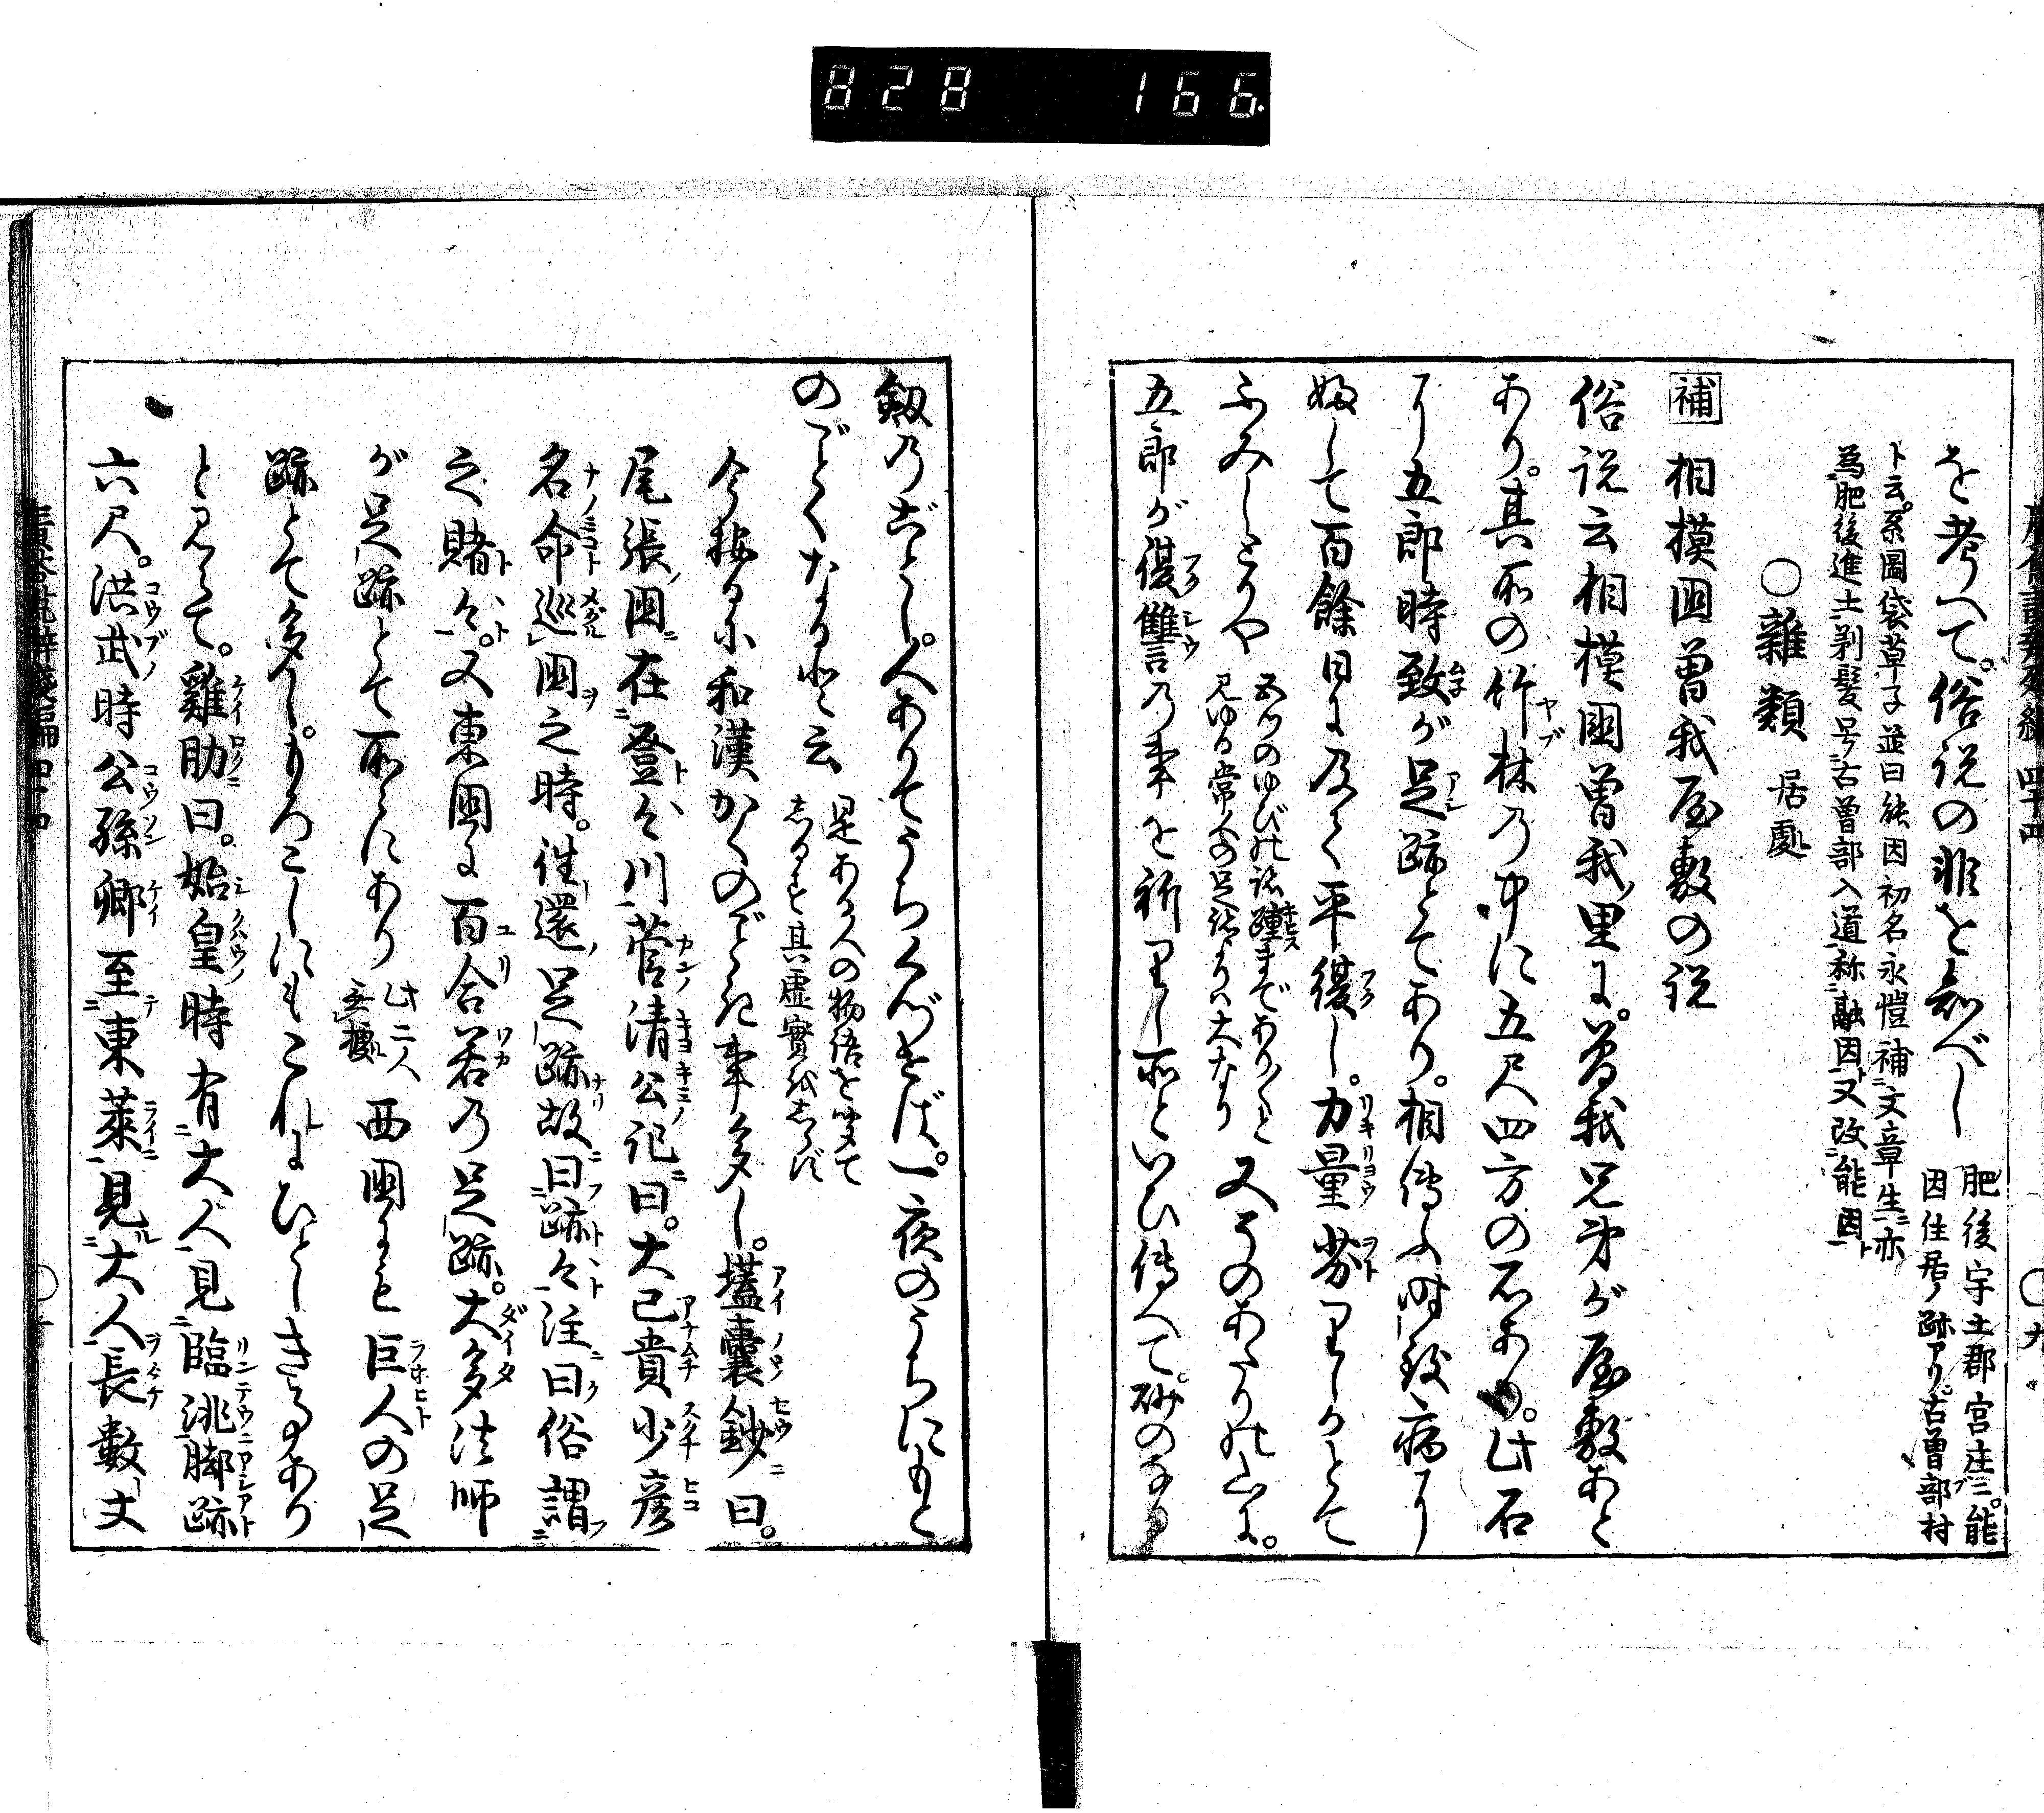 828 166
を考へて。俗説の非を知べし
肥後宇土郡宮庄ニ。能
因住居ノ跡アリ。古曽部村
ト云。系圖袋草子並曰能因初名永愷補文章生亦
為肥後進士剃髮号古曽部入道称融因又改能因ト
○雜類 居處
補 相摸国曽我屋敷の説
俗説云相摸國曽我里に。曽我兄弟が屋敷あと
あり。其所の竹林の中に五尺四方の石あり。此石
に五郎時致が足跡とてあり。相傳ふ時致病に
ふみしとりや
五ツのゆびの跡踵まであり〱と
見ゆる常人の足跡より大なり
又そのあたりの山に。
婦して百餘日に及て平復し。力量劣りしかとて
五郎が復讐の事を祈りし所といひ傳へて。砂のなる
劔のごとし。人ありてうちくべきば。一夜のうちにもと
のごとくなると云
是ある人の物語を聞て
しるす其虚實はしらず
今按るに和漢かくのごとき事多し。壒囊鈔曰。
尾張国在登々川菅清公記曰。大己貴少彦
名命巡国之時。往還足跡故曰跡々注曰俗謂
之賭々。又東国に百合若の足跡。大多法師
が足跡とて所々にあり
此二人
無據
西国にも巨人の足
跡とて多し。もろこしにもこれにひとしき事あり
と見えて。雞肋曰。始皇時有大人見臨洮脚跡
六尺。洪武時公孫卿至東萊見大人長數丈